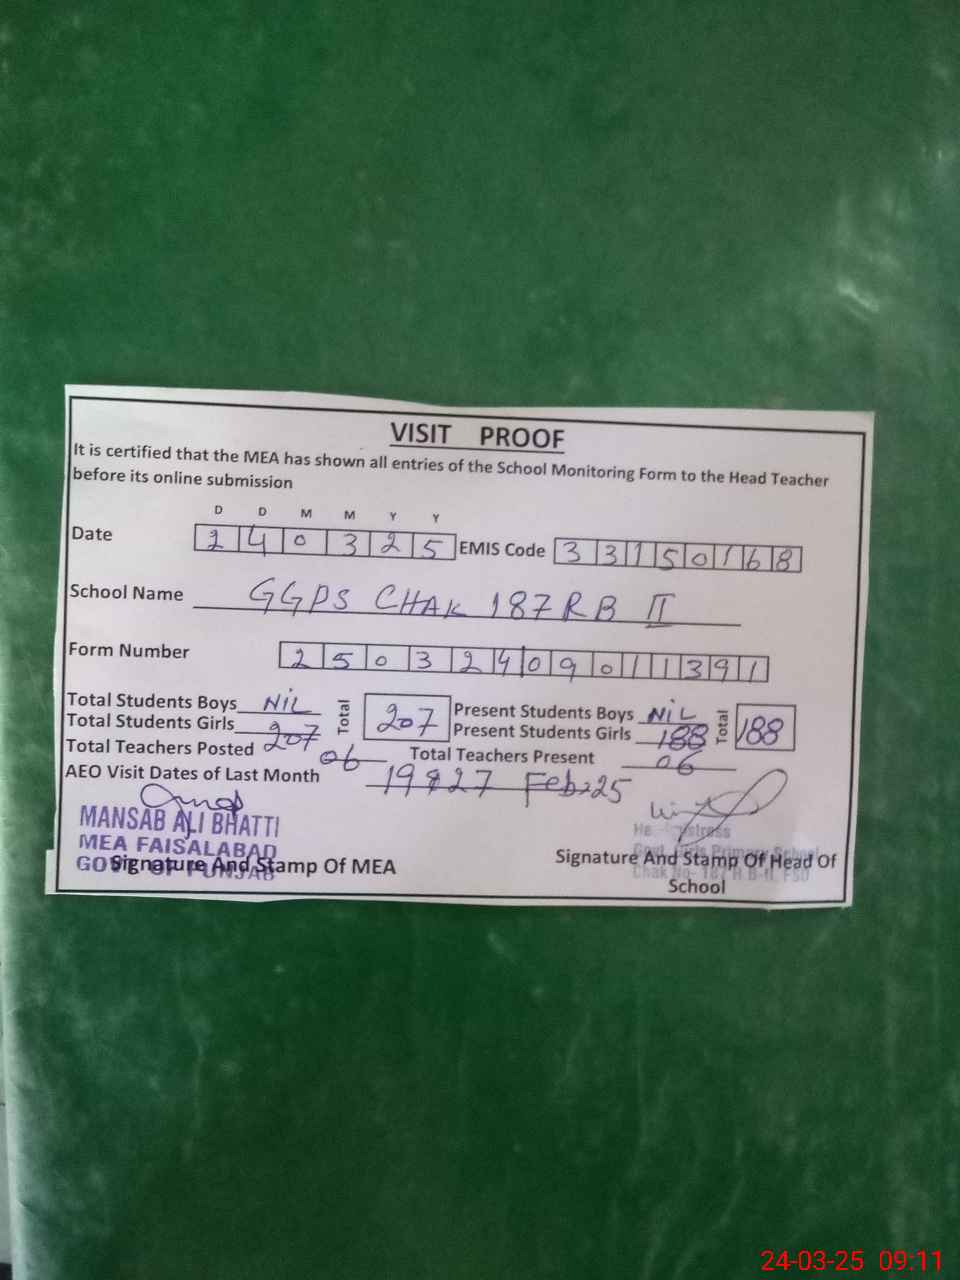 VISIT PROOF
It is certified that the MEA has shown all entries of the School Monitoring Form to the Head Teacher
before its online submission
D D M M Y Y
Date 240325 EMIS Code 33150168
School Name GGPS CHAK 187 RB II
Form Number 25032409011391
Total Students Boys NIL Total 207 Present Students Boys NIL Total 188
Total Students Girls 207 Present Students Girls 188
Total Teachers Posted 06 Total Teachers Present 06
AEO Visit Dates of Last Month 19 & 27 Feb-25
MANSAB ALI BHATTI
MEA FAISALABAD
GOVT OF PUNJAB
Signature And Stamp Of MEA
Govt. Girls Primary School
Chak No- 187 R.B-II, FSD
Signature And Stamp Of Head Of
School
24-03-25 09:11